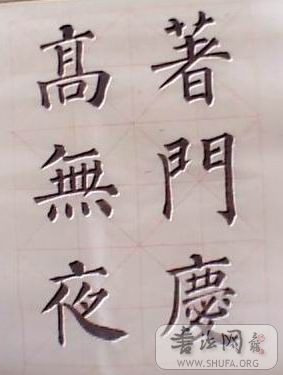 著門慶
髙無夜
书法网
WWW.SHUFA.ORG